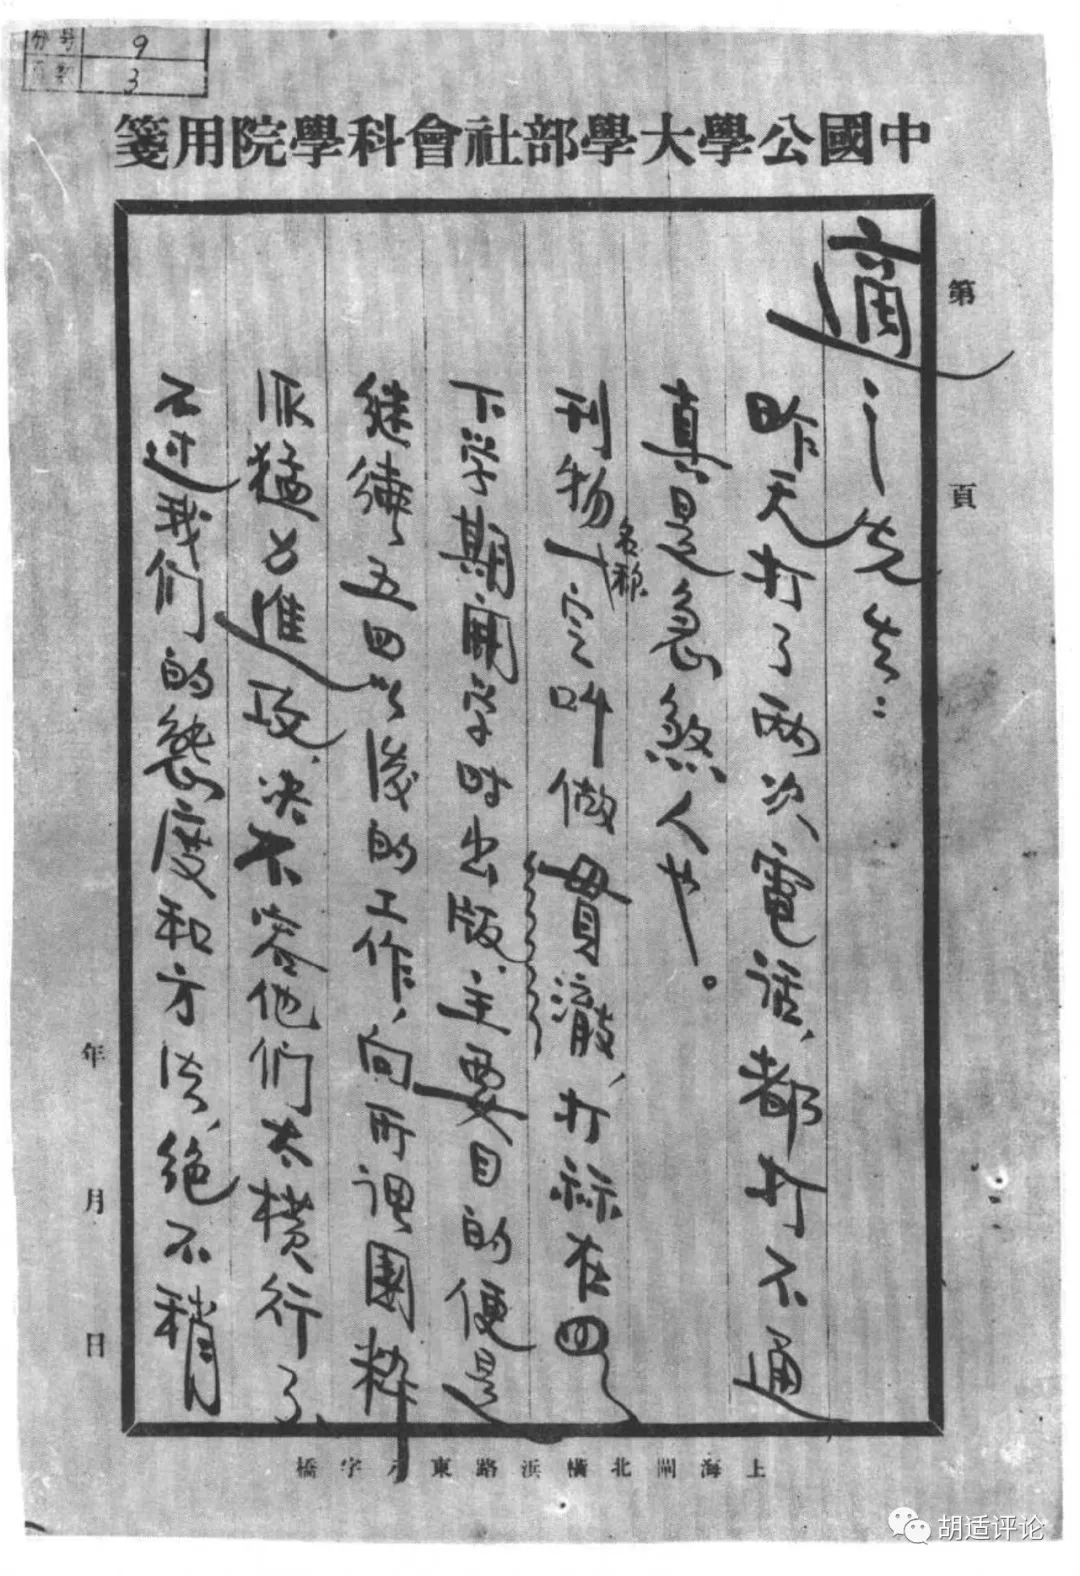 9
3
中國公學大學部社會科學院用箋
第 頁
適之先生：
昨天打了兩次電話，都打不通
真是急煞人也。
刊物名称一定叫做貫澈，打祘在
下学期開学时出版，主要目的便是
継续五四以後的工作，向所谓國粹
派猛力進攻，决不容他們太横行了，
不过我们的態度和方法，絶不稍
年 月 日
上海閘北橫浜路東 字橋
胡适评论